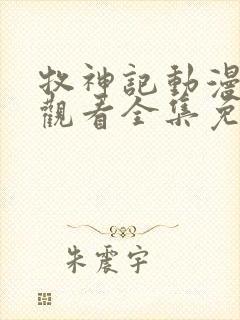 牧神記動漫
觀看全集免
朱震宇